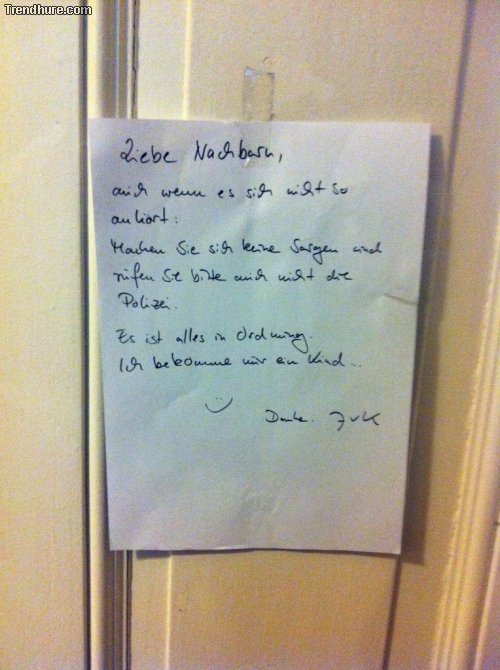 Trendhure.com
Liebe Nachbarn,
auch wenn es sich nicht so
anhört:
Machen Sie sich keine Sorgen und
rufen Sie bitte auch nicht die
Polizei.
Es ist alles in Ordnung.
Ich bekomme nur ein Kind...
Danke.